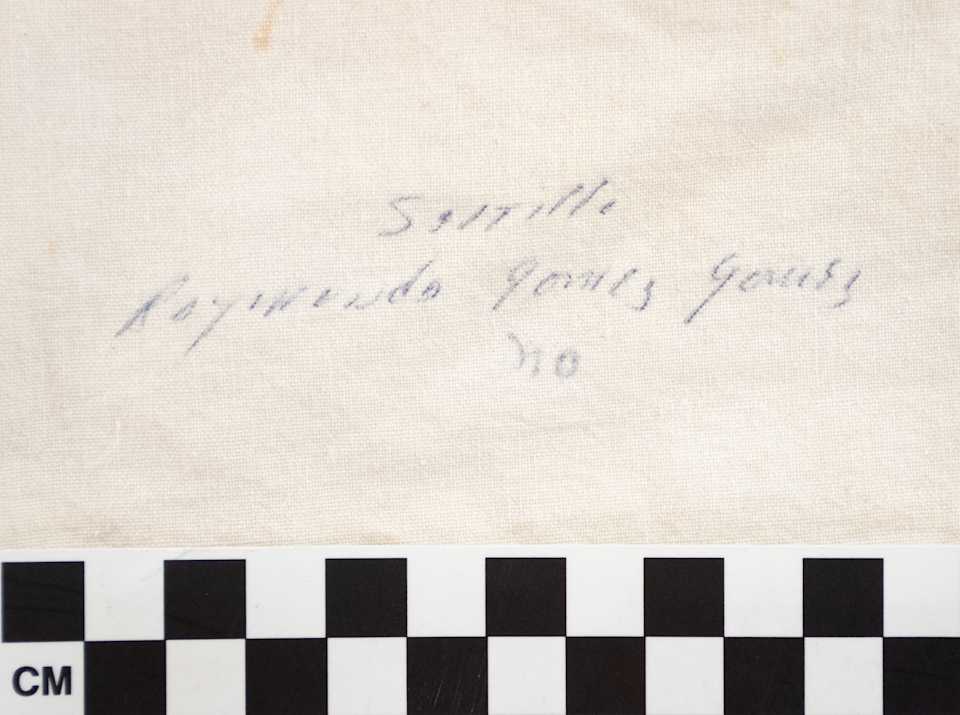 Saltillo
Raymundo Gomez Gomez
no
CM